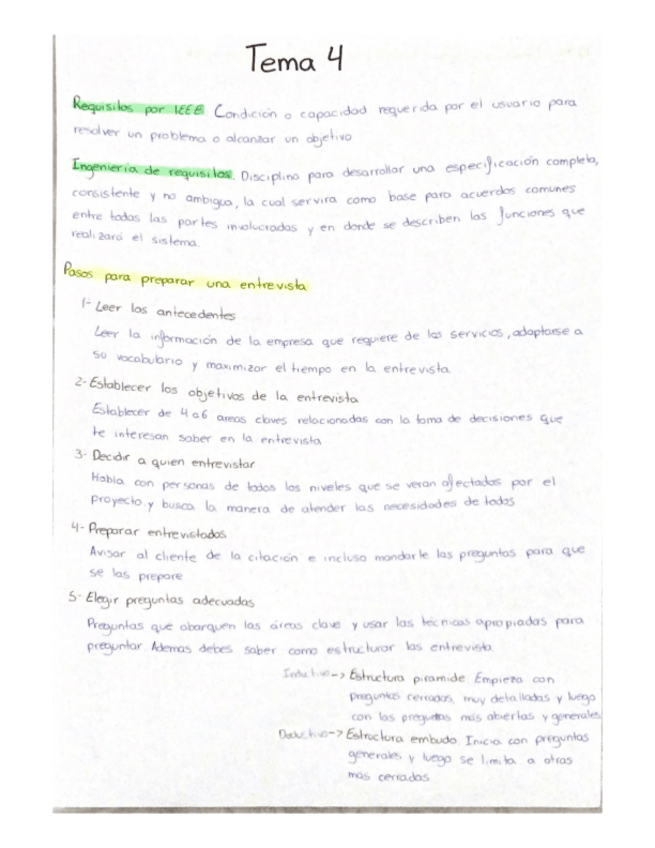 Tema 4
Requisitos por IEEE Condición o capacidad requerida por el usuario para
resolver un problema o alcanzar un objetivo
Ingeniería de requisitos. Disciplina para desarrollar una especificación completa,
consistente y no ambigua, la cual servira como base para acuerdos comunes
entre todas las partes involucradas y en donde se describen las funciones que
realizará el sistema.
Pasos para preparar una entrevista
1- Leer los antecedentes
Leer la información de la empresa que requiere de los servicios, adaptarse a
su vocabulario y maximizar el tiempo en la entrevista
2- Establecer los objetivos de la entrevista
Establecer de 4 a 6 areas claves relacionadas con la toma de decisiones que
te interesan saber en la entrevista
3- Decidir a quien entrevistar
Habla con personas de todos los niveles que se veran afectados por el
proyecto y busca la manera de atender las necesidades de todos
4- Preparar entrevistados
Avisar al cliente de la citación e incluso mandarle las preguntas para que
se las prepare
5- Elegir preguntas adecuadas
Preguntas que abarquen las áreas clave y usar las técnicas apropiadas para
preguntar. Ademas debes saber como estructurar las entrevista
Inductivo -> Estructura piramide. Empieza con
preguntas cerradas, muy detalladas y luego
con las preguntas más abiertas y generales
Deductivo -> Estructura embudo. Inicia con preguntas
generales y luego se limita a otras
mas cerradas